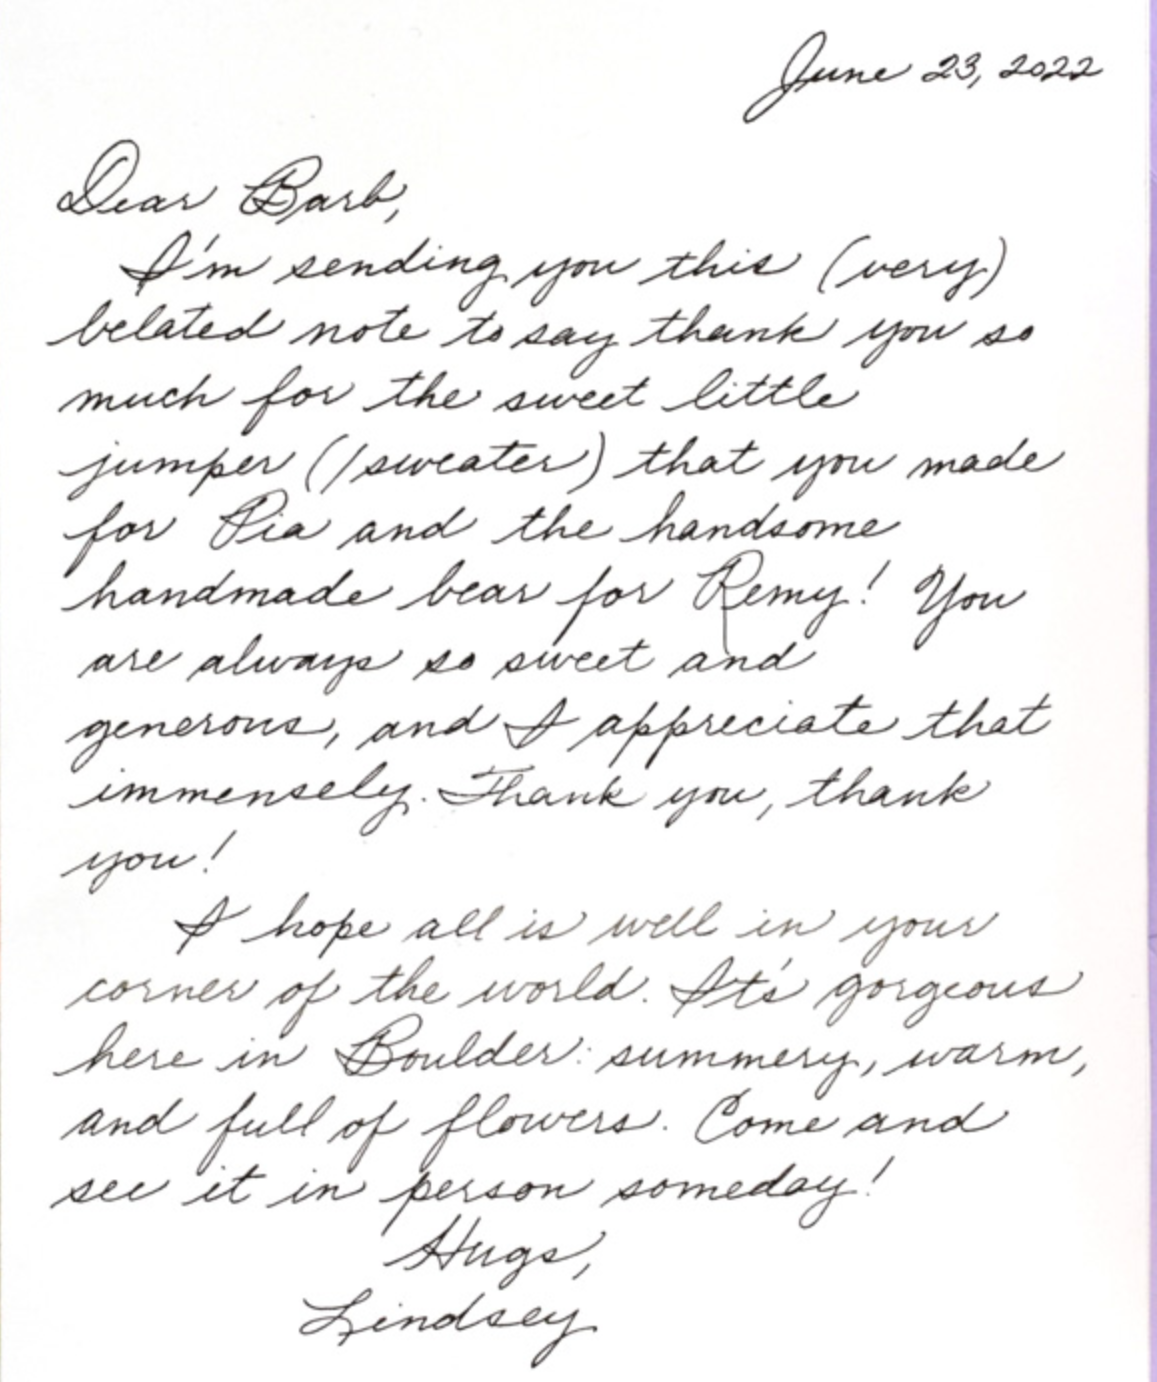 June 23, 2022
Dear Barb,
I'm sending you this (very)
belated note to say thank you so
much for the sweet little
jumper (/sweater) that you made
for Pia and the handsome
handmade bear for Remy! You
are always so sweet and
generous, and I appreciate that
immensely. Thank you, thank
you!
I hope all is well in your
corner of the world. It's gorgeous
here in Boulder: summery, warm,
and full of flowers. Come and
see it in person someday!
Hugs,
Lindsey